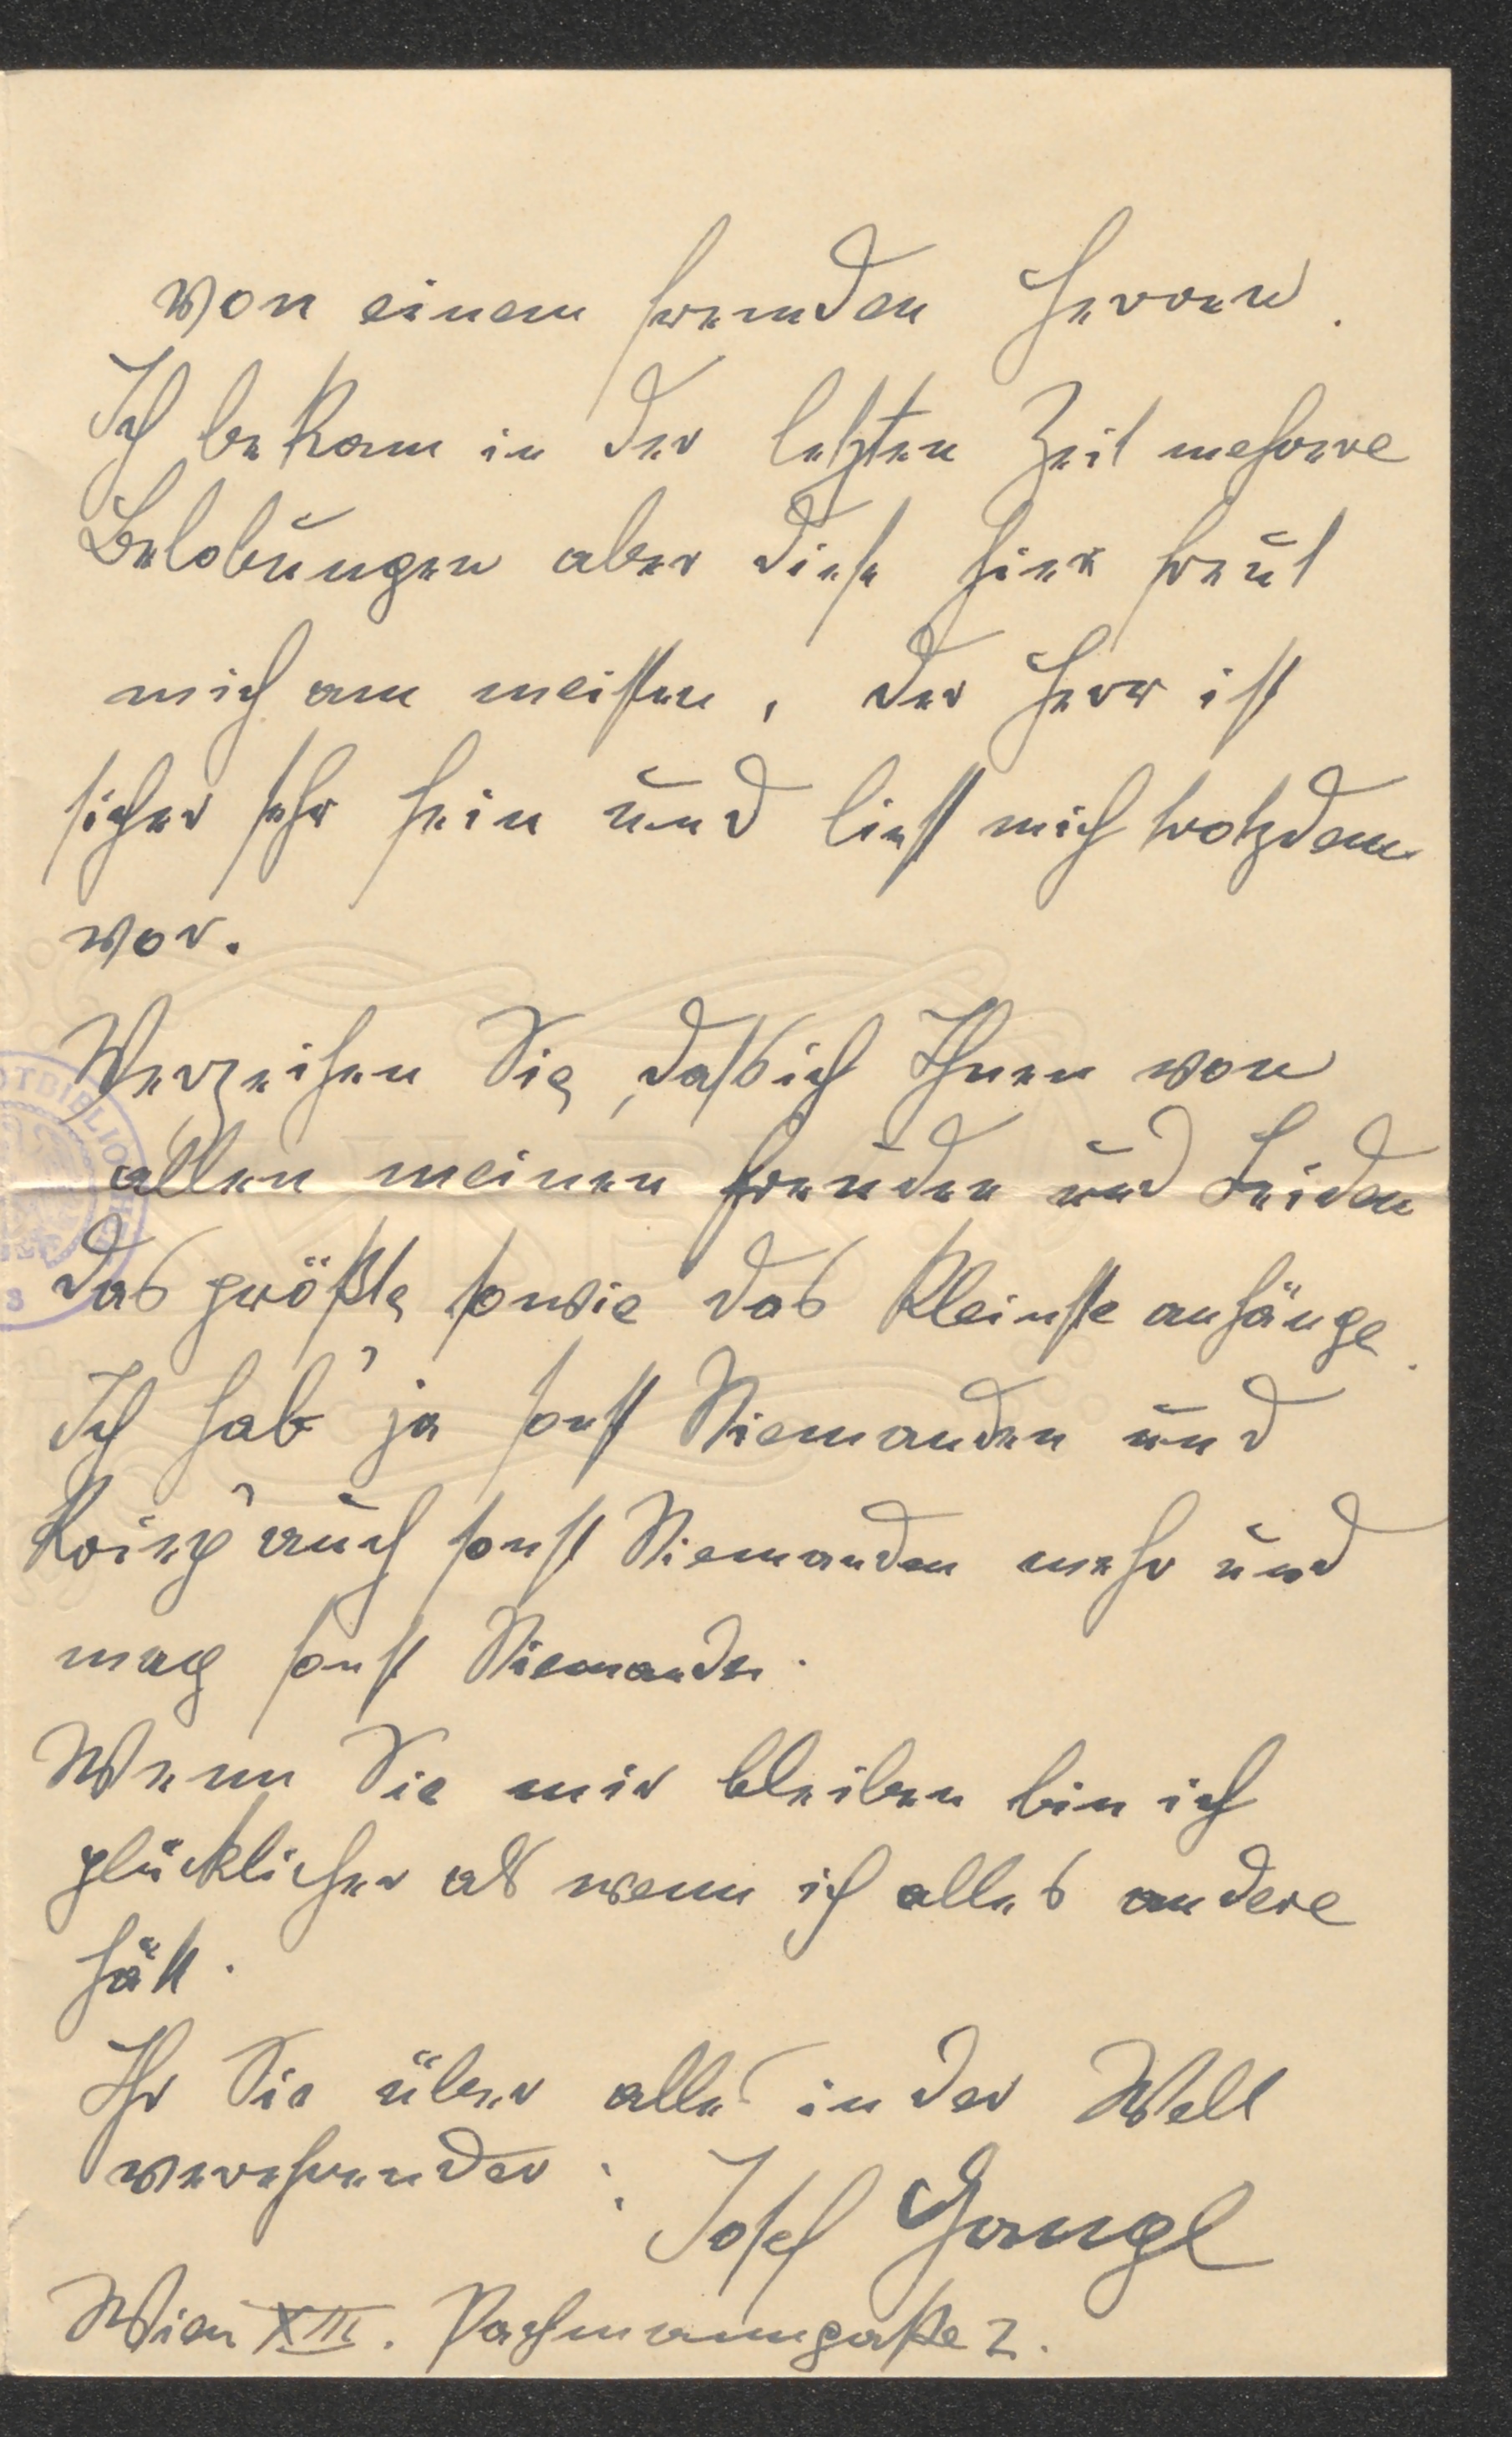 von einem fremden Herren.
Ich bekam in der letzten Zeit mehrere
Belobungen aber diese hier freut
mich am meisten, der Herr ist
sicher sehr fein und liest mich trotzdem
vor.
Verzeihen Sie, daß ich Ihnen von
allen meinen Freuden und Leiden
das größte sowie das kleinste anhänge.
Ich hab' ja sonst Niemanden und
krieg' auch sonst Niemanden mehr und
mag sonst Niemanden.
Wenn Sie mir bleiben bin ich
glücklicher als wenn ich alles andere
hätt.
Ihr Sie über alles in der Welt
verehrender:
Josef Gangl
Wien XIII. Pachmanngaße 2.